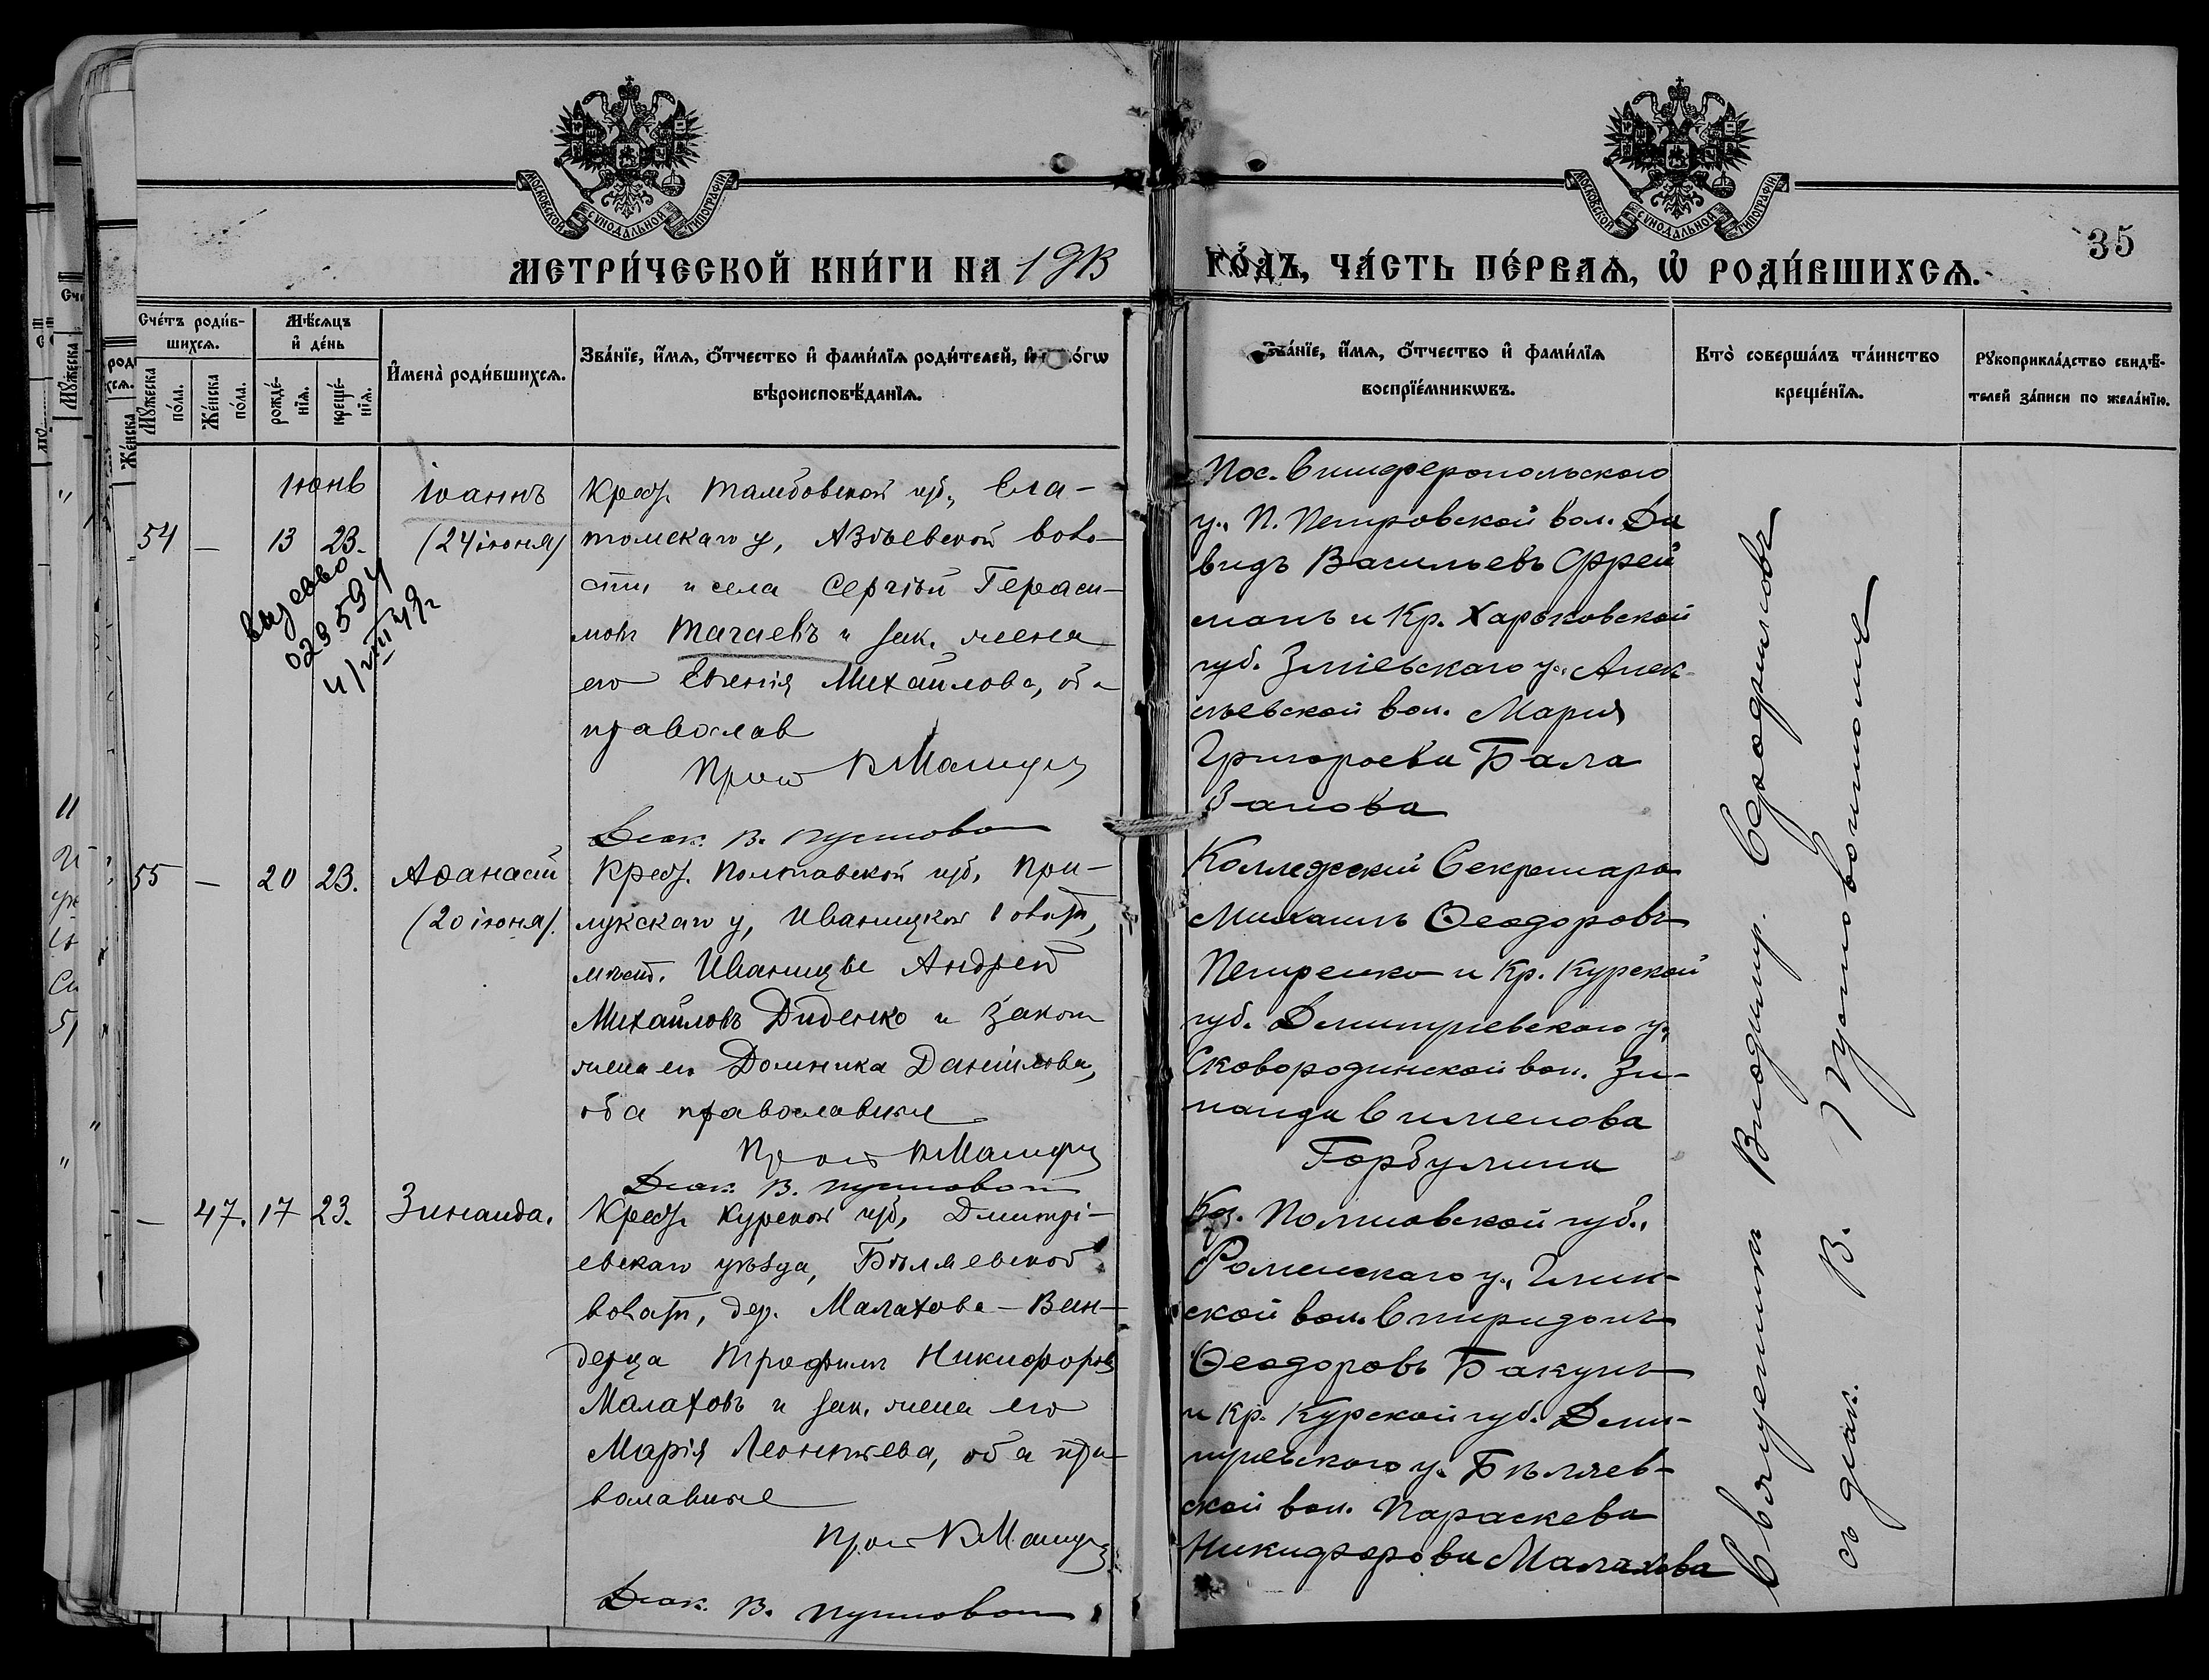 МОСКОВСКОЙ СѴНОДАЛЬНОЙ ТИПОГРАФІИ
МОСКОВСКОЙ СѴНОДАЛЬНОЙ ТИПОГРАФІИ
35
МЕТРИ́ЧЕСКОЙ КНИ́ГИ НА
ГО́ДЪ, ЧА́СТЬ ПЕ́РВАѦ, Ѡ҆ РОДИ́ВШИХСѦ.
Сче́тъ роди́в-
шихсѧ.
Мꙋ́жеска
по́ла.
Же́нска
по́ла.
Мѣ́сѧцъ
и҆ де́нь
рожде́-
нїѧ.
креще́-
нїѧ.
И҆мена̀ роди́вшихсѧ.
Зва́нїе, и҆́мѧ, ѻ҆́тчество и҆ фами́лїѧ роди́телей, и҆
вѣроисповѣ́данїѧ.
Зва́нїе, и҆́мѧ, ѻ҆́тчество и҆ фами́лїѧ
воспрїе́мникѡвъ.
Кто̀ соверша́лъ та́инство
креще́нїѧ.
Рꙋкоприкла́дство свидѣ́-
телей за́писи по жела́нїю.
Іюнь
54 — 13 23.
Іоаннъ
(24 іюня)
029594
Крест. Тамбовской губ., Ела-
томскаго у, Азѣевской воло-
сти и села Сергѣй Гераси-
мовъ Тагаевъ и зак. жена
его Евгенія Михайлова, оба
православ
Прот
Діак. В. Пустовой
Пос. Симферопольскаго
у., П. Петровской вол. Да
видъ Васильевъ Фрей
манъ и Кр. Харьковской
губ. Зміевскаго у. Алек
сѣевской вол. Марія
Григорьева Бала
банова
55 — 20 23.
Аѳанасій
(20 іюня).
Крест. Полтавской губ, При-
лукскаго у, Иваницкой волост,
мѣст. Иваницы Андрей
Михайловъ Диденко и закон
жена его Домника Даніилова,
оба православные
Прот
Діак. В. Пустовой
Коллежскій Секретарь
Михаилъ Ѳеодоровъ
Петренко и Кр. Курской
губ. Дмитріевскаго у,
Сковородинской вол. Зи-
наида Симеонова
Горбулина
— 47. 17 23.
Зинаида.
Крест. Курской губ, Дмитрі-
евскаго уѣзда, Бѣляевской
волост, дер. Малахова-Вин-
Трофимъ Никифоровъ
Малаховъ и зак. жена его
Марія Леонтьева, оба пра-
вославные
Прот
Діак. В. Пустовой
Коз. Полтавской губ.,
Роменскаго у., Глин-
ской вол. Спиридонъ
Ѳеодоровъ Бакунъ
и Кр. Курской губ. Дми-
тріевскаго у. Бѣляев-
ской вол. Параскева
Никифорова Малахова
Священникъ Владимир.
съ діак. В. Пустовойтомъ